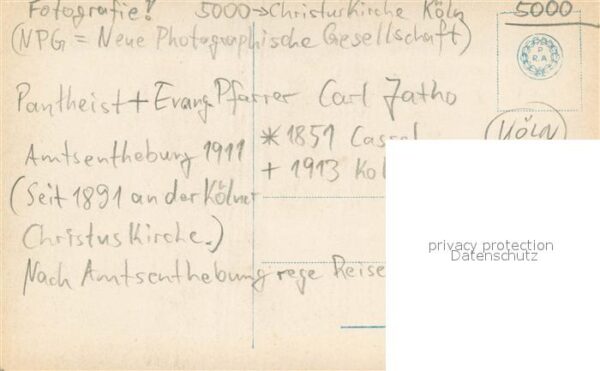 Fotografie! 5000 → Christuskirche Köln 5000
(NPG = Neue Photographische Gesellschaft)
P
R.A
Pantheist + Evang. Pfarrer Carl Jatho
* 1851 Cassel
(KÖLN)
Amtsenthebung 1911
+ 1913 Köl
(Seit 1891 an der Kölner
Christuskirche.)
Nach Amtsenthebung rege Reise
privacy protection
Datenschutz